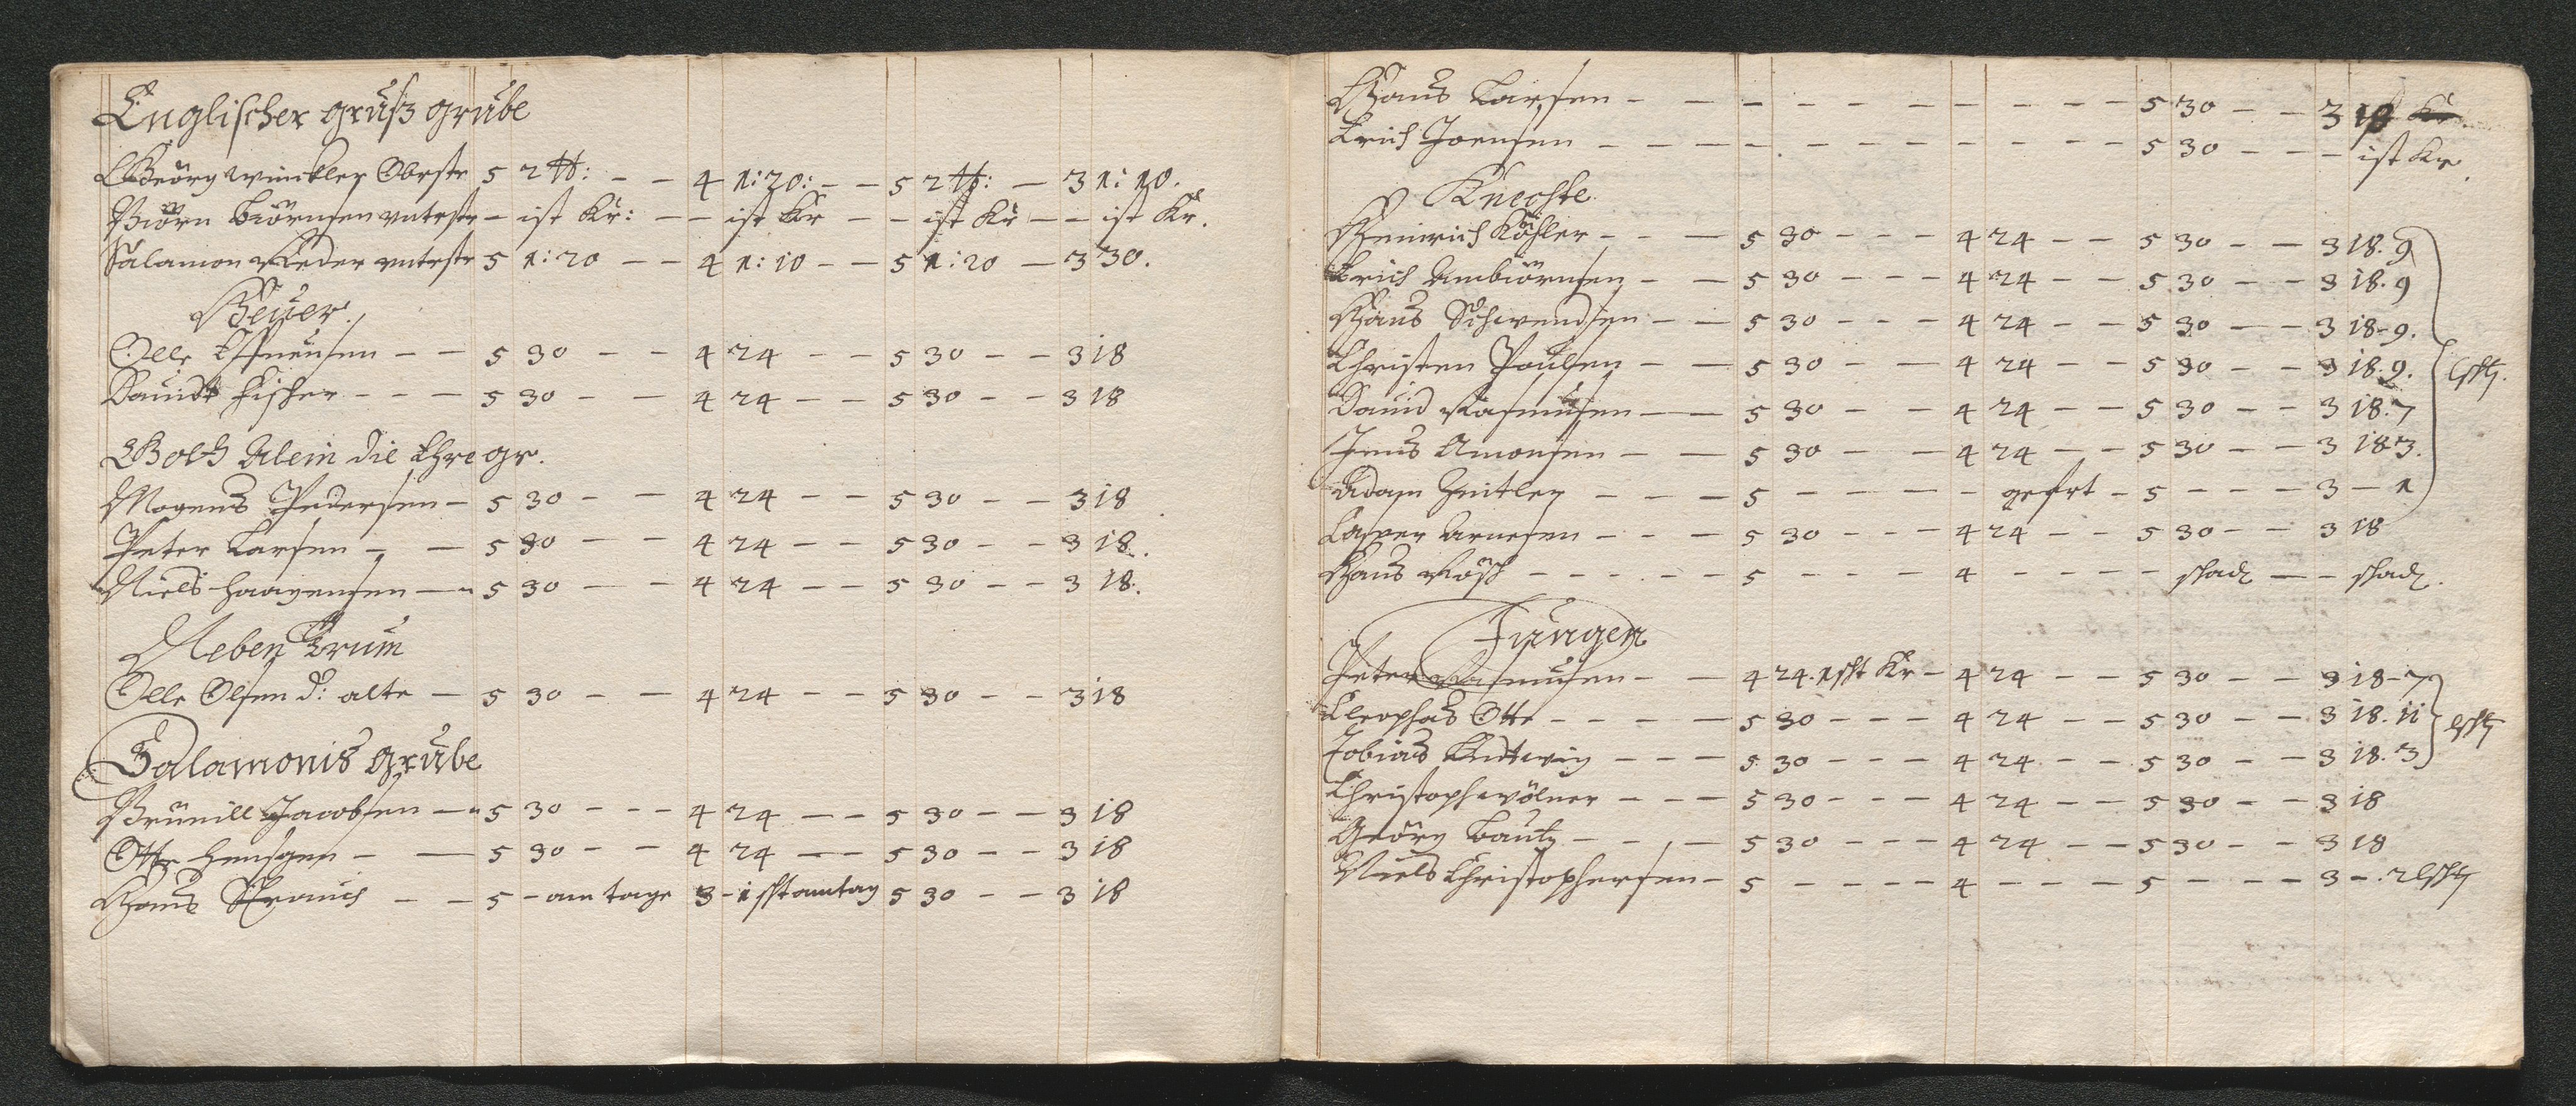 Englischer gruß grube
Geörg Winckler Obrstr 5 2 tt: - - 4 1:20: - - 5 2 tt: - 3 1:10.
Biörn Biörnsen untrstr - ist Kr: - - ist Kr - - ist Kr - - ist Kr.
Salamon Rieder untrstr 5 1:20 - - 4 1:10 - - 5 1:20 - 3 30.
Heuer.
Olle - - 5 30 - - 4 24 - - 5 30 - - 3 18
Dauidt Fischer - - - 5 30 - - 4 24 - - 5 30 - - 3 18
Gott Alein die Ehre gr.
Mogens Pedersen - 5 30 - - 4 24 - - 5 30 - - 3 18
Peter Larsen - - 5 30 - - 4 24 - - 5 30 - - 3 18.
Niels Haagensen - 5 30 - - 4 24 - - 5 30 - - 3 18.
Neben Trum
Olle Olsen d: alte - 5 30 - - 4 24 - - 5 30 - - 3 18
Salamonis grube
Brünill Jacobsen - 5 30 - - - 4 24 - - 5 30 - - 3 18
Otte - - 5 30 - - 4 24 - - 5 30 - - 3 18
Hans Strauch - - 5 - am tage 3 - 1 scht am tag 5 30 - - 3 18
Hans Larsen - - - - - - - - - - 5 30 - - 3 18
Erich Joensen - - - - - - - - - - 5 30 - - - ist Kr.
Knechte
Heinrich Köhler - - - 5 30 - - - 4 24 - - 5 30 - - 3 18. 9
Erich Ambiörnsen - - 5 30 - - - 4 24 - - 5 30 - - 3 18. 9
Hans Schwendsen - - 5 30 - - - 4 24 - - 5 30 - - 3 18 - 9.
Christen Poulsen - - 5 30 - - 4 24 - - 5 30 - - 3 18. 9. scht
Dauid Rasmusen - - 5 30 - - 4 24 - - 5 30 - - 3 18. 7
Jens Amonsen - - 5 30 - - 4 24 - - 5 30 - - 3 18 3.
Adam - - - 5 - - - - gefrt - 5 - - - 3 - 1
Casper Arnesen - - - 5 30 - - 4 24 - - 5 30 - - 3 18
Hans Rösch - - - - - 5 - - - 4 - - - - schad - - schad.
Jungen
Peter Rasmusen - - 4 24. 1 scht Kr - 4 24 - - 5 30 - - 3 18 - 7
Cleophas Otte - - - - 5 30 - - - 4 24 - - 5 30 - - 3 18. 11 scht
Tobias Ludtwig - - - 5 30 - - - 4 24 - - 5 30 - - 3 18. 3
Christoph Wölner - - - 5 30 - - - 4 24 - - 5 30 - - 3 18
Geörg Bautz - - - - 5 30 - - - 4 24 - - 5 30 - - 3 18
Niels Christophersen - 5 - - - - 4 - - - 5 - - - 3 - . 2 scht